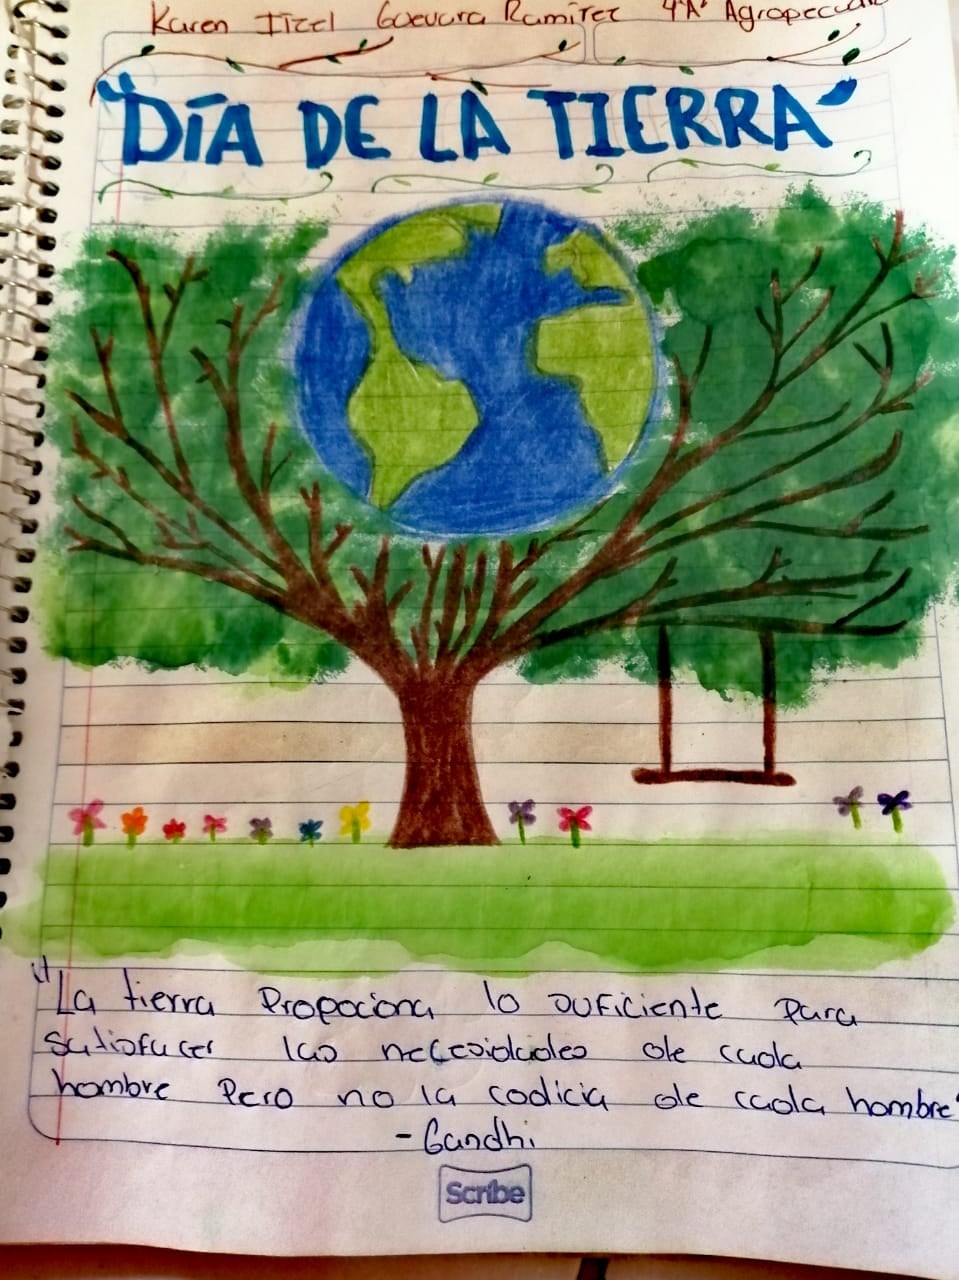 Karen Itzel Guevara Ramirez 4°"A" Agropecuario
"DÍA DE LA TIERRA"
"La tierra Propociona lo suficiente para
satisfacer las necesidades de cada
hombre Pero no la codicia de cada hombre"
- Gandhi.
Scribe